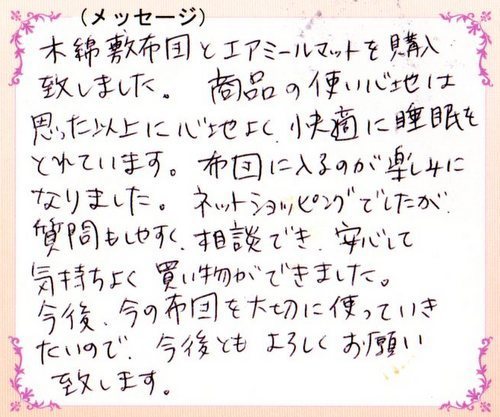 (メッセージ)
木綿敷布団とエアミールマットを購入
致しました。商品の使い心地は
思った以上に心地よく、快適に睡眠を
とれています。布団に入るのが楽しみに
なりました。ネットショッピングでしたが、
質問もしやすく、相談でき、安心して
気持ちよく買い物ができました。
今後、今の布団を大切に使っていき
たいので、今後ともよろしくお願い
致します。